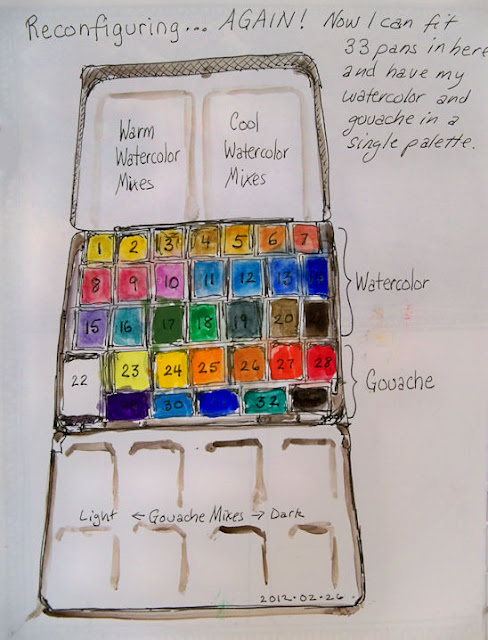 Reconfiguring... AGAIN! Now I can fit
33 pans in here
and have my
watercolor and
gouache in a
single palette.
Warm
Watercolor
Mixes
Cool
Watercolor
Mixes
1 2 3 4 5 6 7
8 9 10 11 12 13 14
Watercolor
15 16 17 18 19 20
22 23 24 25 26 27 28
Gouache
30 32
Light ← Gouache Mixes → Dark
2012.02.26